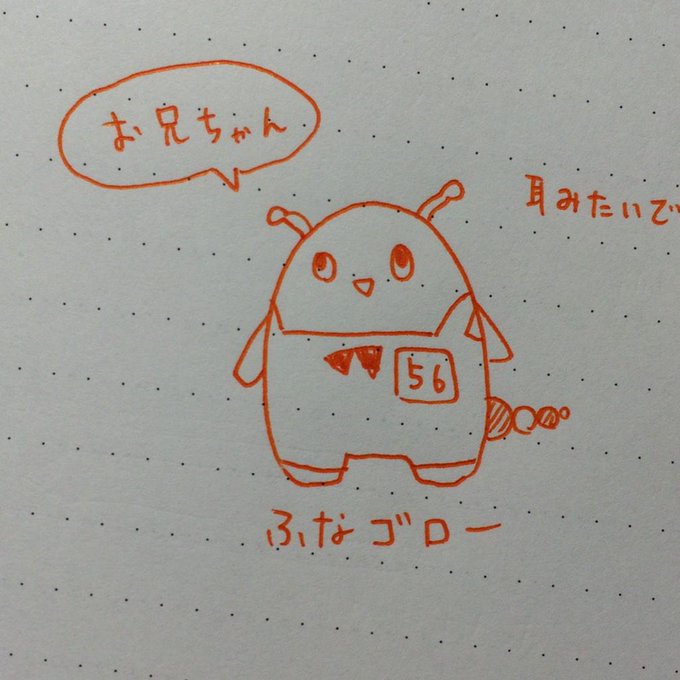 お兄ちゃん
耳みたいで
56
ふなゴロー